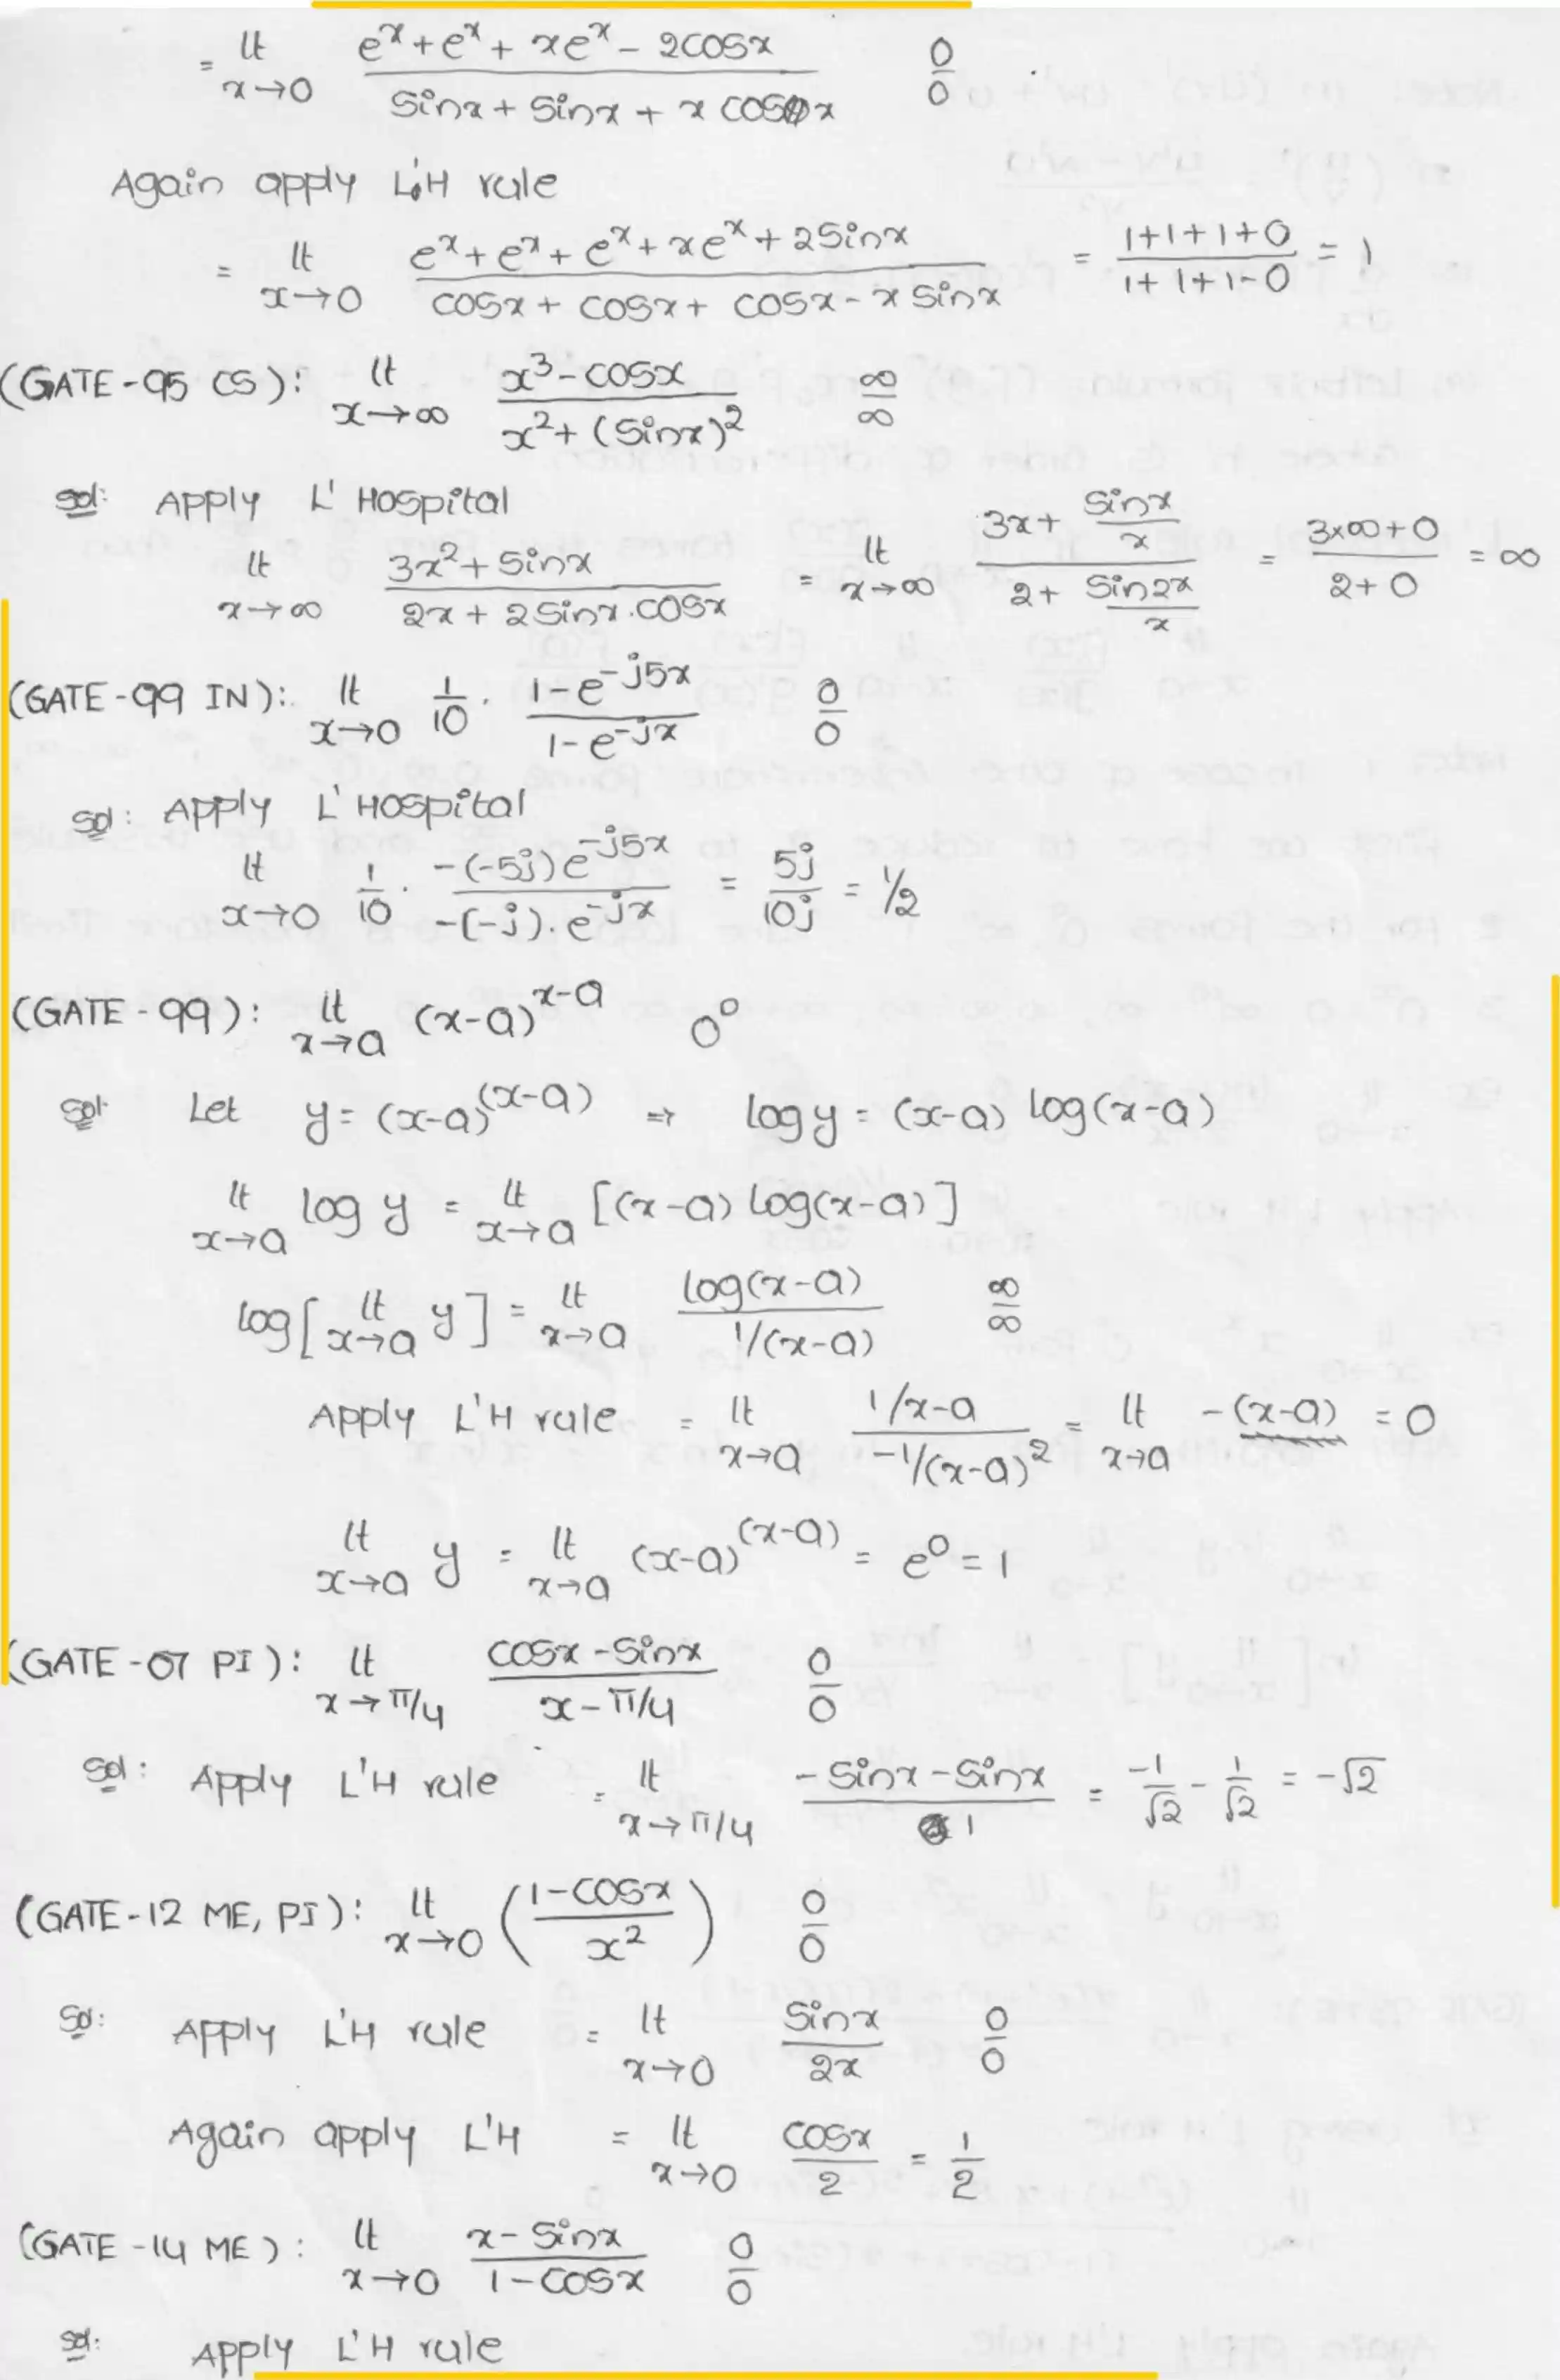 = lt x→0 (e^x + e^x + xe^x - 2cosx)/(sinx + sinx + x cosx) 0/0
Again apply L'H rule
= lt x→0 (e^x + e^x + e^x + xe^x + 2sinx)/(cosx + cosx + cosx - x sinx) = (1+1+1+0)/(1+1+1-0) = 1
(GATE-95 CS): lt x→∞ (x^3 - cosx)/(x^2 + (sinx)^2) ∞/∞
sol: Apply L' Hospital
lt x→∞ (3x^2 + sinx)/(2x + 2sinx.cosx) = lt x→∞ (3x + sinx/x)/(2 + sin2x/x) = (3×∞+0)/(2+0) = ∞
(GATE-99 IN): lt x→0 1/10 . (1-e^-j5x)/(1-e^-jx) 0/0
sol: Apply L' Hospital
lt x→0 1/10 . (-(-5j)e^-j5x)/(-(-j).e^-jx) = 5j/10j = 1/2
(GATE-99): lt x→a (x-a)^x-a 0^0
sol: Let y = (x-a)^(x-a) ⇒ log y = (x-a) log(x-a)
lt x→a log y = lt x→a [(x-a) log(x-a)]
log[lt x→a y] = lt x→a log(x-a)/(1/(x-a)) ∞/∞
Apply L'H rule = lt x→a (1/x-a)/(-1/(x-a)^2) = lt x→a -(x-a) = 0
lt x→a y = lt x→a (x-a)^(x-a) = e^0 = 1
(GATE-07 PI): lt x→π/4 (cosx - sinx)/(x - π/4) 0/0
sol: Apply L'H rule = lt x→π/4 (-sinx - sinx)/1 = -1/√2 - 1/√2 = -√2
(GATE-12 ME, PI): lt x→0 ((1-cosx)/x^2) 0/0
sol: Apply L'H rule = lt x→0 sinx/2x 0/0
Again apply L'H = lt x→0 cosx/2 = 1/2
(GATE-14 ME): lt x→0 (x - sinx)/(1 - cosx) 0/0
sol: Apply L'H rule